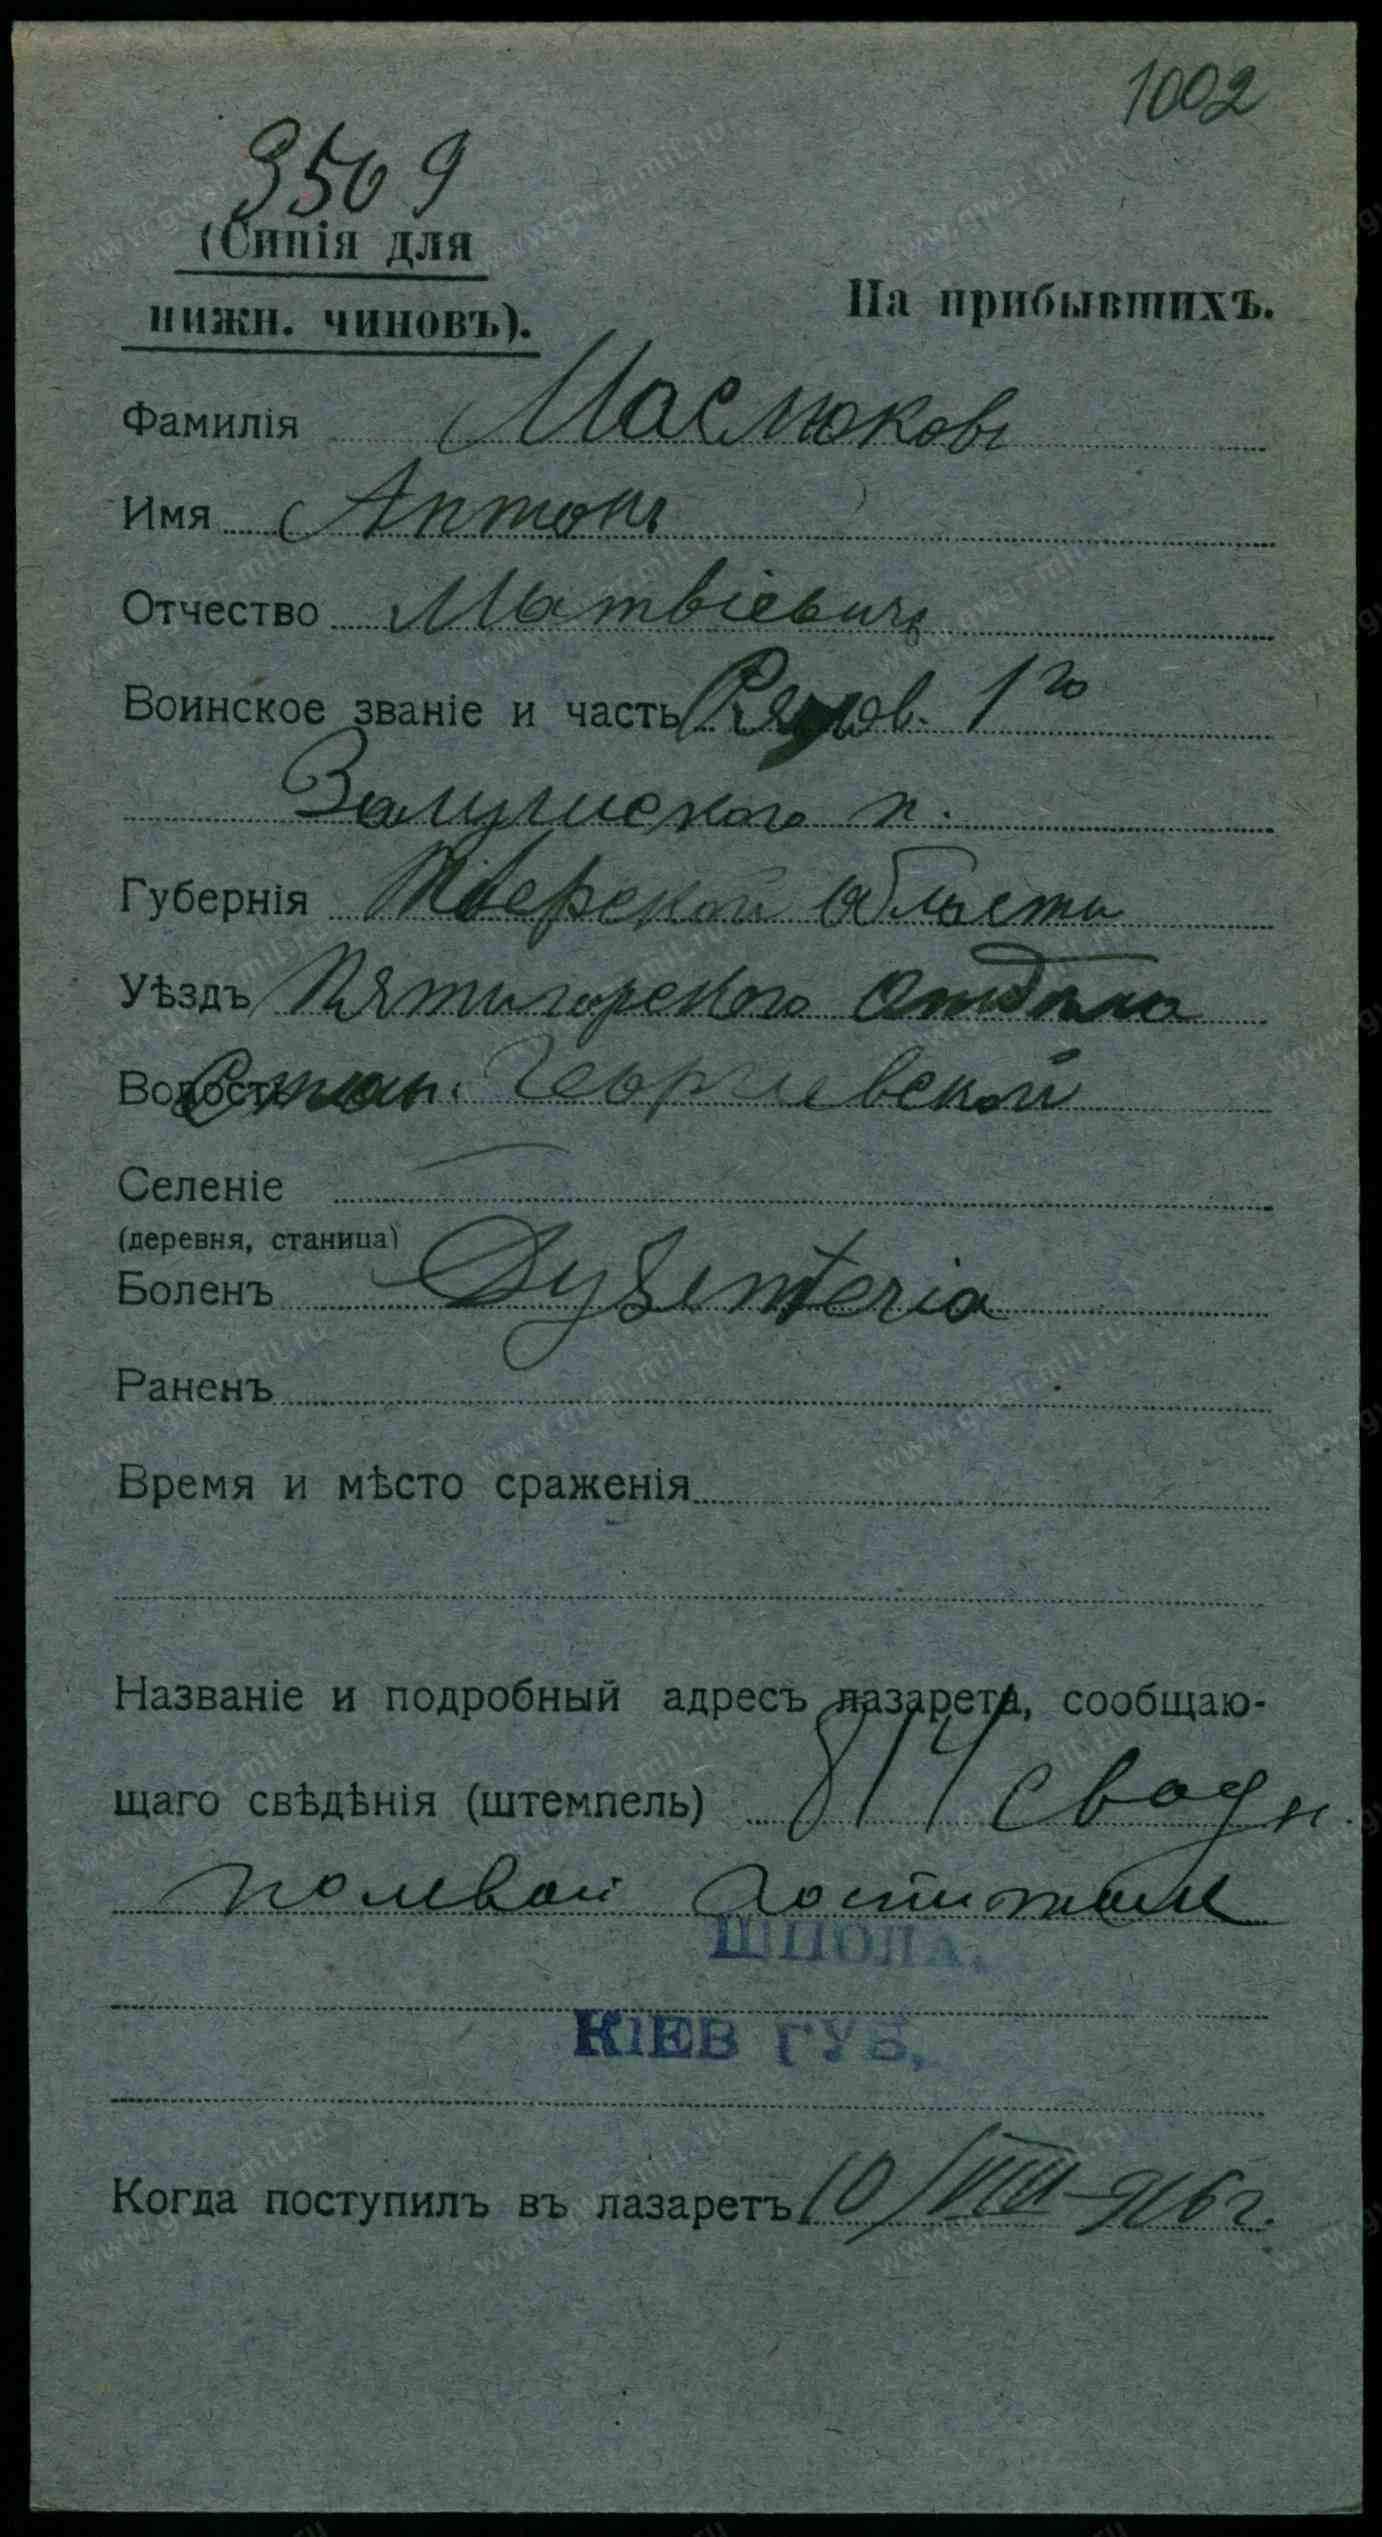 1002
3509
(Синія для
нижн. чиновъ).
На прибывшихъ.
Фамилія Маслюковъ
Имя Антонъ
Отчество Матвіевичъ
Воинское званіе и часть Рядов. 1го
Запуниского п.
Губернія Тверской области
Уѣздъ Пятигорского отдѣла
Волость Стан. Георгиевской
Селеніе
(деревня, станица)
Боленъ Dysenteria
Раненъ
Время и мѣсто сраженія
Названіе и подробный адресъ лазарета, сообщаю-
щаго свѣдѣнія (штемпель) 814 сводн.
полевой госпиталь
ШПОЛА.
КІЕВ ГУБ.
Когда поступилъ въ лазаретъ 10/VIII-916 г.